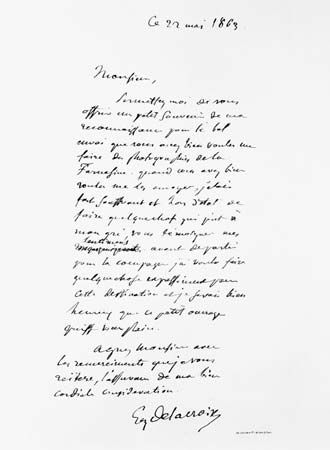 Ce 22 mai 1863
Monsieur,
Permettez moi de vous
offrir un petit souvenir de ma
reconnaissance pour le bel
envoi que vous avez bien voulu me
faire des photographies de la
Farnesine. quand vous avez bien
voulu me les envoyer, j'étais
fort souffrant et hors d'état de
faire quelque chose qui fut à
mon gré, vous témoigner mes
sentiments
avant de partir
pour la campagne j'ai voulu faire
quelque chose expressément pour
cette destination et je serais bien
heureux que ce petit ouvrage
put vous plaire.
Agréez Monsieur avec
les remerciements que je vous
réitère, l'assurance de ma bien
cordiale considération.
Eug Delacroix